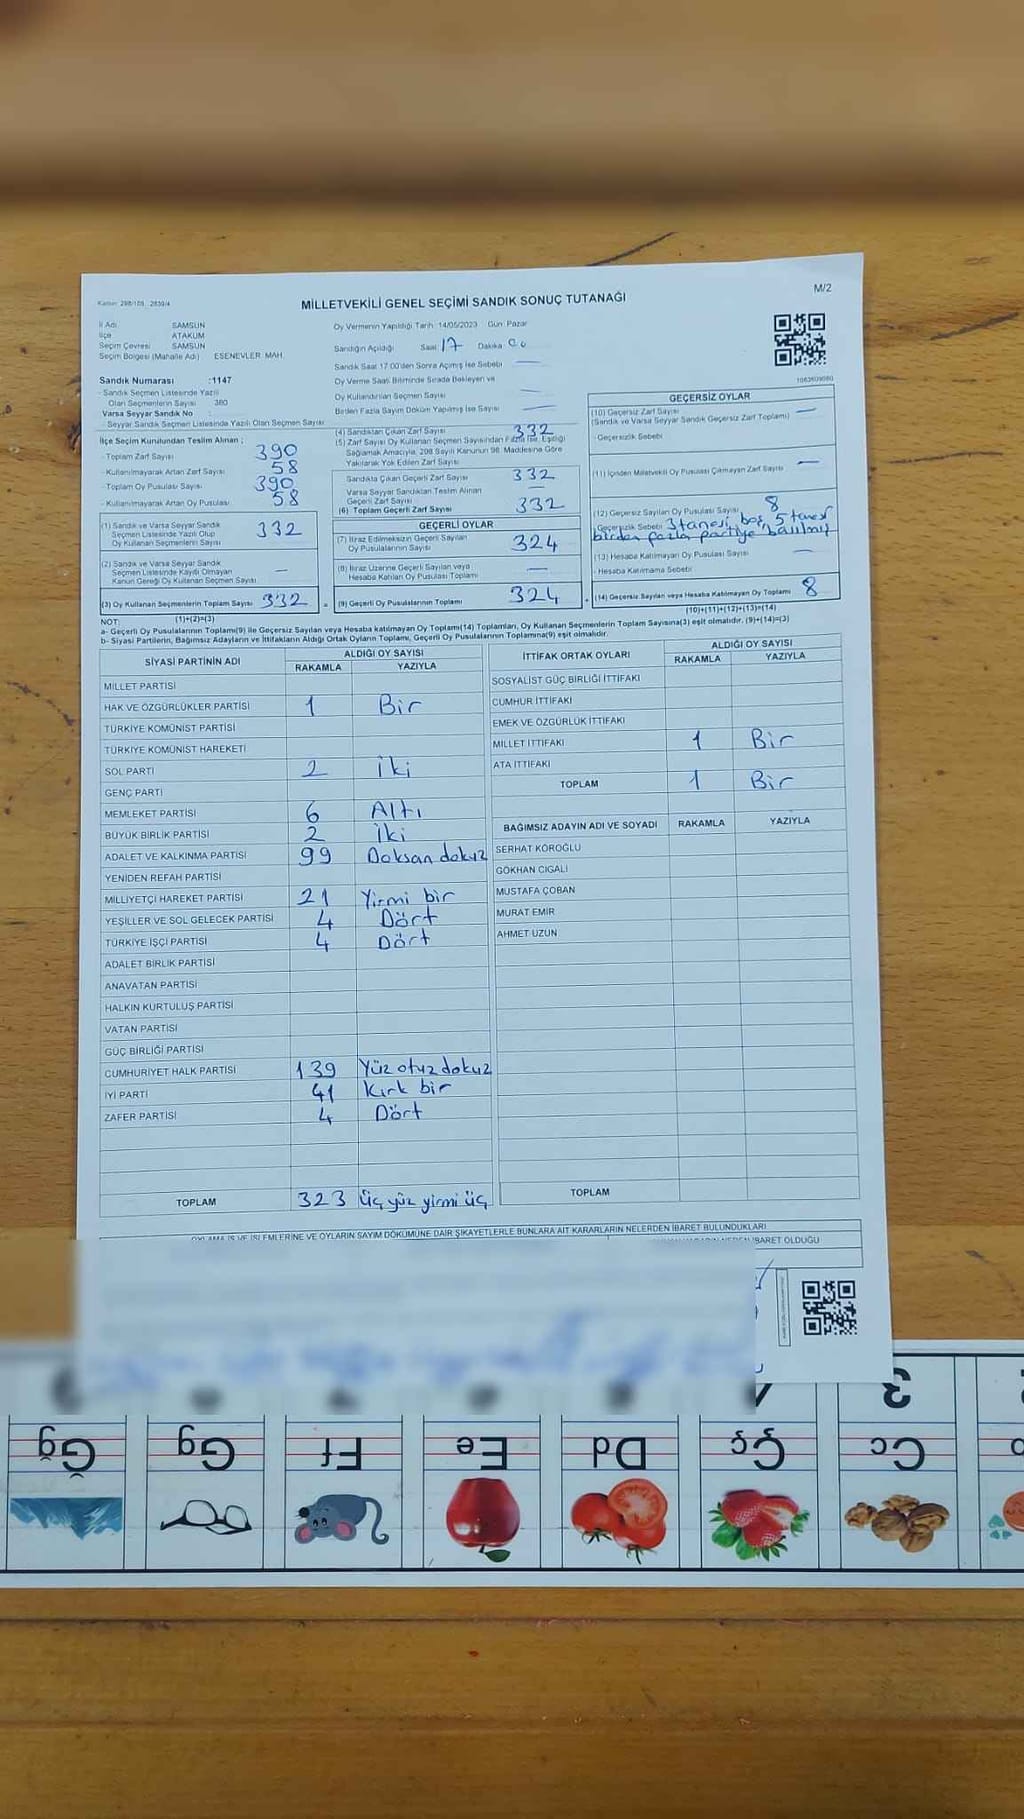 Kanun: 298/105, 2839/4
M/2
MİLLETVEKİLİ GENEL SEÇİMİ SANDIK SONUÇ TUTANAĞI
İl Adı SAMSUN
İlçe ATAKUM
Seçim Çevresi SAMSUN
Seçim Bölgesi (Mahalle Adı) ESENEVLER MAH.
Sandık Numarası :1147
- Sandık Seçmen Listesinde Yazılı
Olan Seçmenlerin Sayısı 380
Varsa Seyyar Sandık No :
- Seyyar Sandık Seçmen Listesinde Yazılı Olan Seçmen Sayısı
Oy Vermenin Yapıldığı Tarih: 14/05/2023 Gün: Pazar
Sandığın Açıldığı Saat 17 Dakika 00
Sandık Saat 17:00'den Sonra Açılmış İse Sebebi —
Oy Verme Saati Bitiminde Sırada Bekleyen ve
Oy Kullandırılan Seçmen Sayısı —
Birden Fazla Sayım Döküm Yapılmış İse Sayısı —
İlçe Seçim Kurulundan Teslim Alınan ;
- Toplam Zarf Sayısı 390
- Kullanılmayarak Artan Zarf Sayısı 58
- Toplam Oy Pusulası Sayısı 390
- Kullanılmayarak Artan Oy Pusulası 58
(1) Sandık ve Varsa Seyyar Sandık
Seçmen Listesinde Yazılı Olup
Oy Kullanan Seçmenlerin Sayısı 332
(2) Sandık ve Varsa Seyyar Sandık
Seçmen Listesinde Kaydı Olmayan
Kanun Gereği Oy Kullanan Seçmen Sayısı —
(3) Oy Kullanan Seçmenlerin Toplam Sayısı 332
(1)+(2)=(3)
(4) Sandıktan Çıkan Zarf Sayısı 332
(5) Zarf Sayısı Oy Kullanan Seçmen Sayısından Fazla İse, Eşitliği
Sağlamak Amacıyla, 298 Sayılı Kanunun 98. Maddesine Göre
Yakılarak Yok Edilen Zarf Sayısı
Sandıkta Çıkan Geçerli Zarf Sayısı 332
Varsa Seyyar Sandıktan Teslim Alınan
Geçerli Zarf Sayısı —
(6) Toplam Geçerli Zarf Sayısı 332
GEÇERLİ OYLAR
(7) İtiraz Edilmeksizin Geçerli Sayılan
Oy Pusulalarının Sayısı 324
(8) İtiraz Üzerine Geçerli Sayılan veya
Hesaba Katılan Oy Pusulası Toplamı —
= (9) Geçerli Oy Pusulalarının Toplamı 324
1063609080
GEÇERSİZ OYLAR
(10) Geçersiz Zarf Sayısı —
(Sandık ve Varsa Seyyar Sandık Geçersiz Zarf Toplamı)
- Geçersizlik Sebebi
(11) İçinden Milletvekili Oy Pusulası Çıkmayan Zarf Sayısı —
(12) Geçersiz Sayılan Oy Pusulası Sayısı 8
- Geçersizlik Sebebi 3 tanesi boş 5 tanesi
birden fazla partiye basılmış
(13) Hesaba Katılmayan Oy Pusulası Sayısı —
- Hesaba Katılmama Sebebi
(14) Geçersiz Sayılan veya Hesaba Katılmayan Oy Toplamı 8
(10)+(11)+(12)+(13)=(14)
NOT:
a- Geçerli Oy Pusulalarının Toplamı(9) ile Geçersiz Sayılan veya Hesaba katılmayan Oy Toplamı(14) Toplamları, Oy Kullanan Seçmenlerin Toplam Sayısına(3) eşit olmalıdır. (9)+(14)=(3)
b- Siyasi Partilerin, Bağımsız Adayların ve İttifakların Aldığı Ortak Oyların Toplamı, Geçerli Oy Pusulalarının Toplamına(9) eşit olmalıdır.
SİYASİ PARTİNİN ADI ALDIĞI OY SAYISI
RAKAMLA YAZIYLA
MİLLET PARTİSİ
HAK VE ÖZGÜRLÜKLER PARTİSİ 1 Bir
TÜRKİYE KOMÜNİST PARTİSİ
TÜRKİYE KOMÜNİST HAREKETİ
SOL PARTİ 2 İki
GENÇ PARTİ
MEMLEKET PARTİSİ 6 Altı
BÜYÜK BİRLİK PARTİSİ 2 İki
ADALET VE KALKINMA PARTİSİ 99 Doksan dokuz
YENİDEN REFAH PARTİSİ
MİLLİYETÇİ HAREKET PARTİSİ 21 Yirmi bir
YEŞİLLER VE SOL GELECEK PARTİSİ 4 Dört
TÜRKİYE İŞÇİ PARTİSİ 4 Dört
ADALET BİRLİK PARTİSİ
ANAVATAN PARTİSİ
HALKIN KURTULUŞ PARTİSİ
VATAN PARTİSİ
GÜÇ BİRLİĞİ PARTİSİ
CUMHURİYET HALK PARTİSİ 139 Yüz otuz dokuz
İYİ PARTİ 41 Kırk bir
ZAFER PARTİSİ 4 Dört
TOPLAM 323 üç yüz yirmi üç
İTTİFAK ORTAK OYLARI ALDIĞI OY SAYISI
RAKAMLA YAZIYLA
SOSYALİST GÜÇ BİRLİĞİ İTTİFAKI
CUMHUR İTTİFAKI
EMEK VE ÖZGÜRLÜK İTTİFAKI
MİLLET İTTİFAKI 1 Bir
ATA İTTİFAKI
TOPLAM 1 Bir
BAĞIMSIZ ADAYIN ADI VE SOYADI RAKAMLA YAZIYLA
SERHAT KÖROĞLU
GÖKHAN CIGALI
MUSTAFA ÇOBAN
MURAT EMİR
AHMET UZUN
TOPLAM
İŞLEMLERİNE VE OYLARIN SAYIM DÖKÜMÜNE DAİR ŞİKAYETLERLE BUNLARA AİT KARARLARIN NELERDEN İBARET BULUNDUKLARI
İBARET OLDUĞU
3
Ğğ Gg Ff Ee Dd Çç Cc